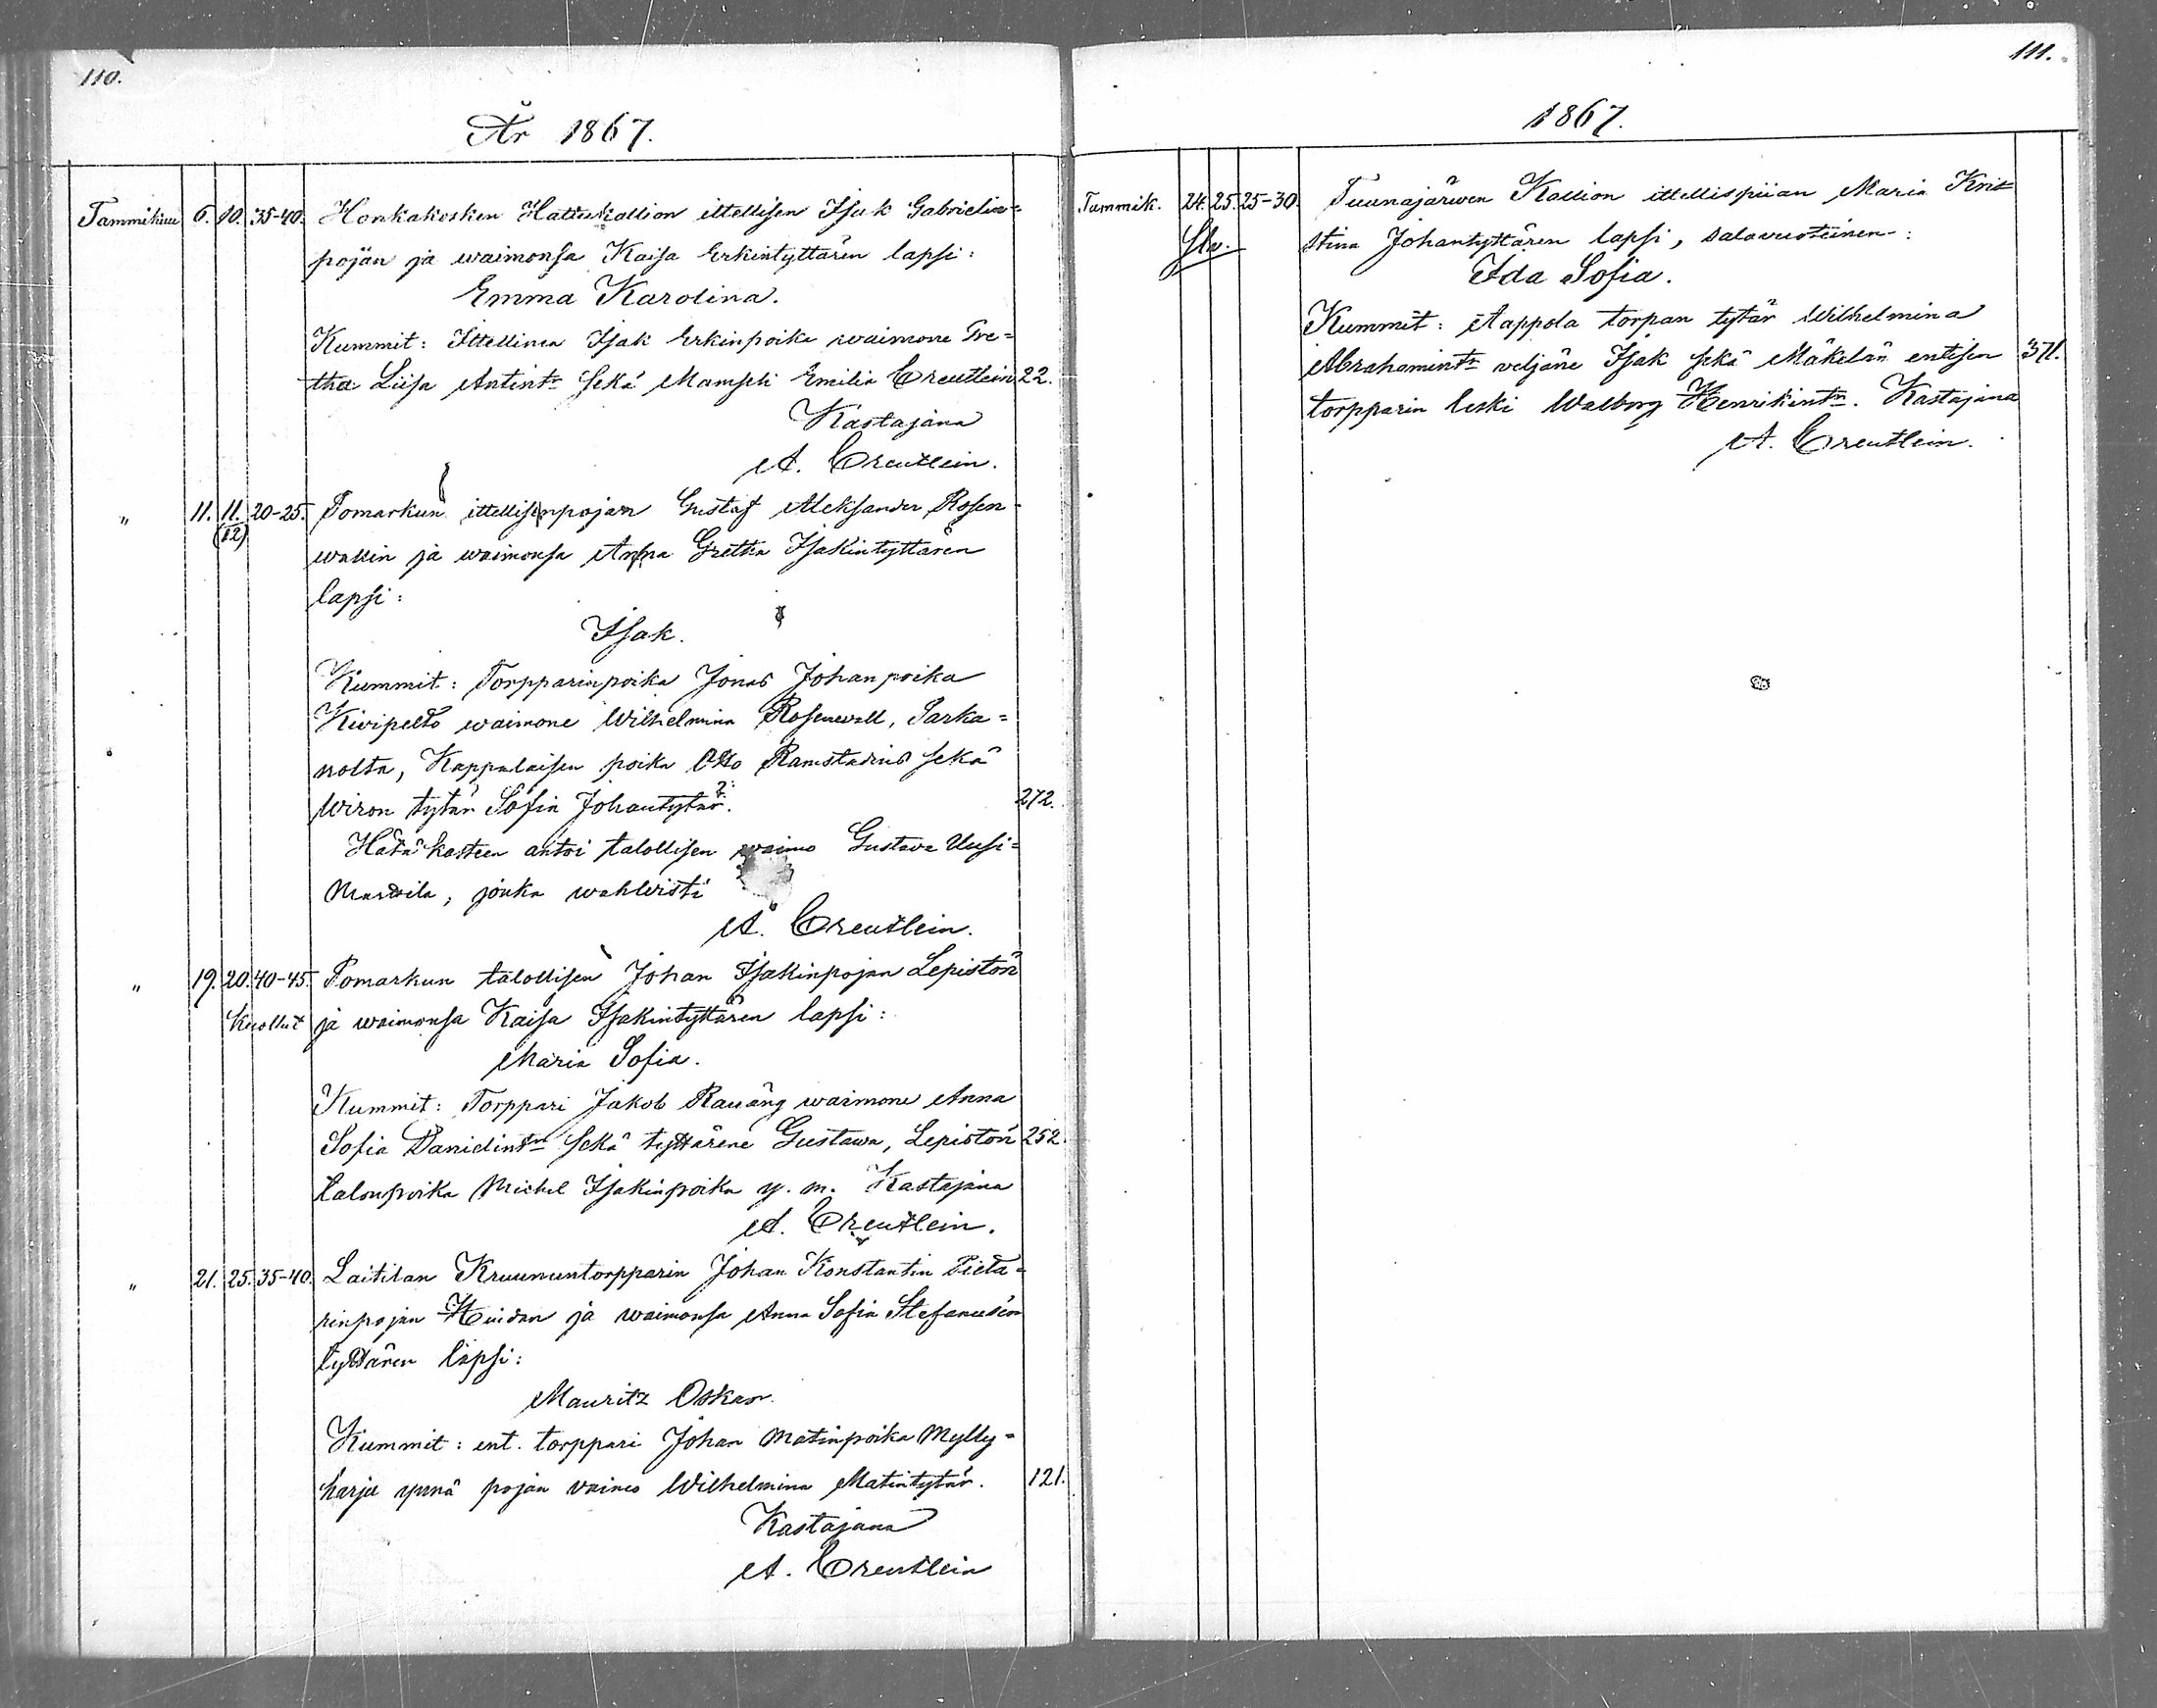 110.
År 1867.
Tammikuu 6. 10. 35-40. Honkakosken Hattukallion ittellisen Isak Gabrielin=
pojan ja waimonsa Kaisa Erkintyttären lapsi:
Emma Karolina.
Kummit: Ittellinen Isak Erkinpoika waimone Gre=
tha Liisa Antintr sekä Mamseli Emilia Creutlein 22.
Kastajana
A. Creutlein.
" 11. 11. 20-25. Pomarkun ittellisenpojan Gustaf Aleksander Rosen-
(12)
wallin ja waimonsa Anna Gretha Isakintyttären
lapsi:
Isak.
Kummit: Torpparinpoika Jonas Johanpoika
Kivipelto waimone Wilhelmina Rosenwall, Sarka=
nolta, Kappalaisen poika Otto Ramstadius sekä
Wiron tytär Sofia Johantytär. 272.
Hätäkasteen antoi talollisen waimo Gustava Uusi=
Marttila, jonka wahwisti
A. Creutlein.
" 19. 20. 40-45. Pomarkun talollisen Johan Isakinpojan Lepistön
Kuollut ja waimonsa Kaisa Isakintyttären lapsi:
Maria Sofia.
Kummit: Torppari Jakob Rauäng waimone Anna
Sofia Danielintr sekä tyttärene Gustawa, Lepistön 252.
talonpoika Michel Isakinpoika y. m. Kastajana
A. Creutlein.
" 21. 25. 35-40. Laitilan Kruununtorpparin Johan Konstantin Pieta=
rinpojan Huidan ja waimonsa Anna Sofia Stefanusen
tyttären lapsi:
Mauritz Oskar.
Kummit: ent. torppari Johan Matinpoika Mylly=
harju ynnä pojan vaimo Wilhelmina Matintytär. 121.
Kastajana
A. Creutlein
111.
1867.
Tammik. 24. 25. 25-30. Tuunajärwen Kallion ittellispiian Maria Kris=
Slv. stina Johantyttären lapsi, salavuoteinen:
Ida Sofia.
Kummit: Aappola torpan tytär Wilhelmina
Abrahamintr veljäne Isak sekä Mäkelän entisen 371.
torpparin leski Walborg Henrikintr. Kastajana
A. Creutlein.